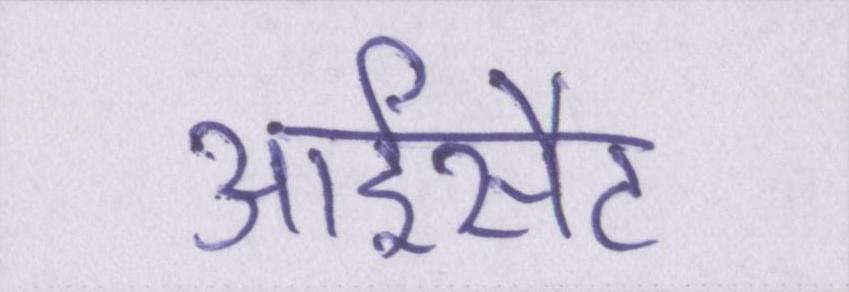 आईंसैट